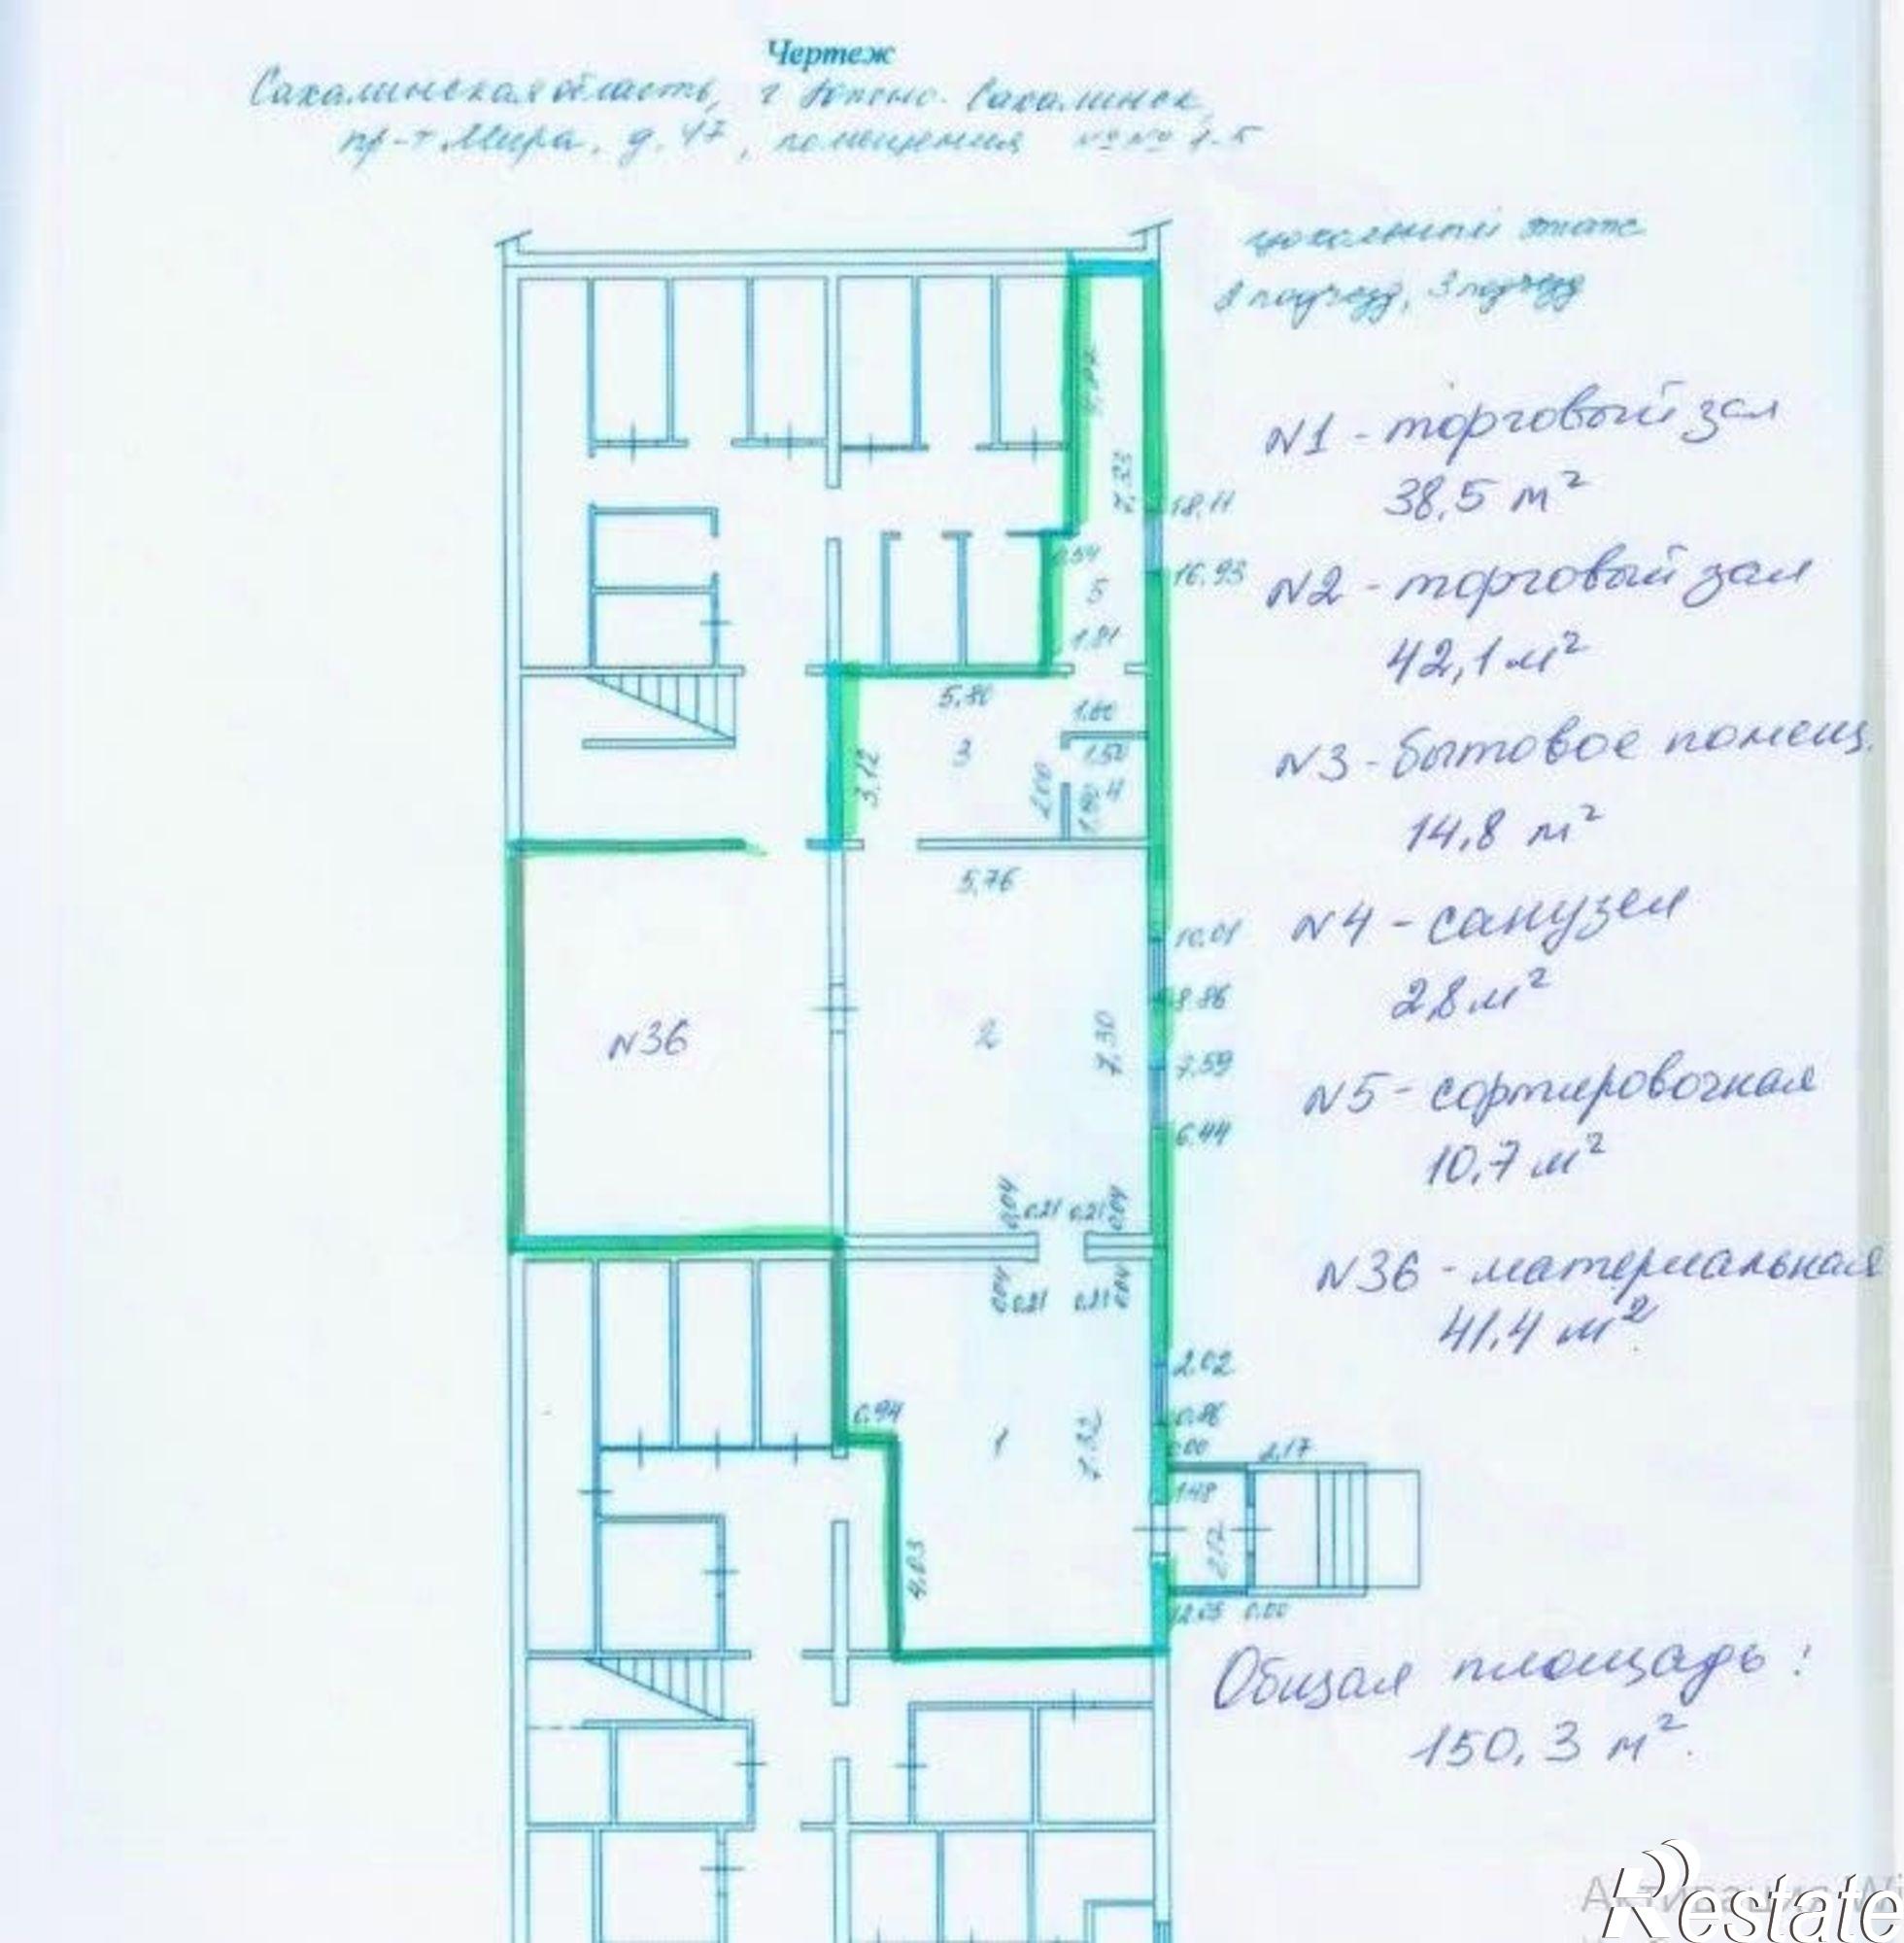 Чертеж
Сахалинская область, г Южно-Сахалинск,
пр-т Мира, д. 47, помещения №№ 1-5
цокольный этаж
подъезд, 3 подъезд
N1 - торговый зал
38,5 м²
N2 - торговый зал
42,1 м²
N3 - бытовое помещ.
14,8 м²
N4 - санузел
2,8 м²
N5 - сортировочная
10,7 м²
N36 - материальная
41,4 м²
7,33
18,11
0,54
16,93
5
1,81
5,80
1,60
3
1,50
3,12
2,00
1,90
4
5,76
10,01
8,86
N36
2
7,30
7,59
6,44
0,04
0,21
0,21
0,04
0,04
0,21
0,21
0,04
2,02
0,94
0,86
1
7,32
0,00
2,17
1,48
2,12
4,03
12,05
0,00
Общая площадь:
150,3 м².
Активация Wi
Restate